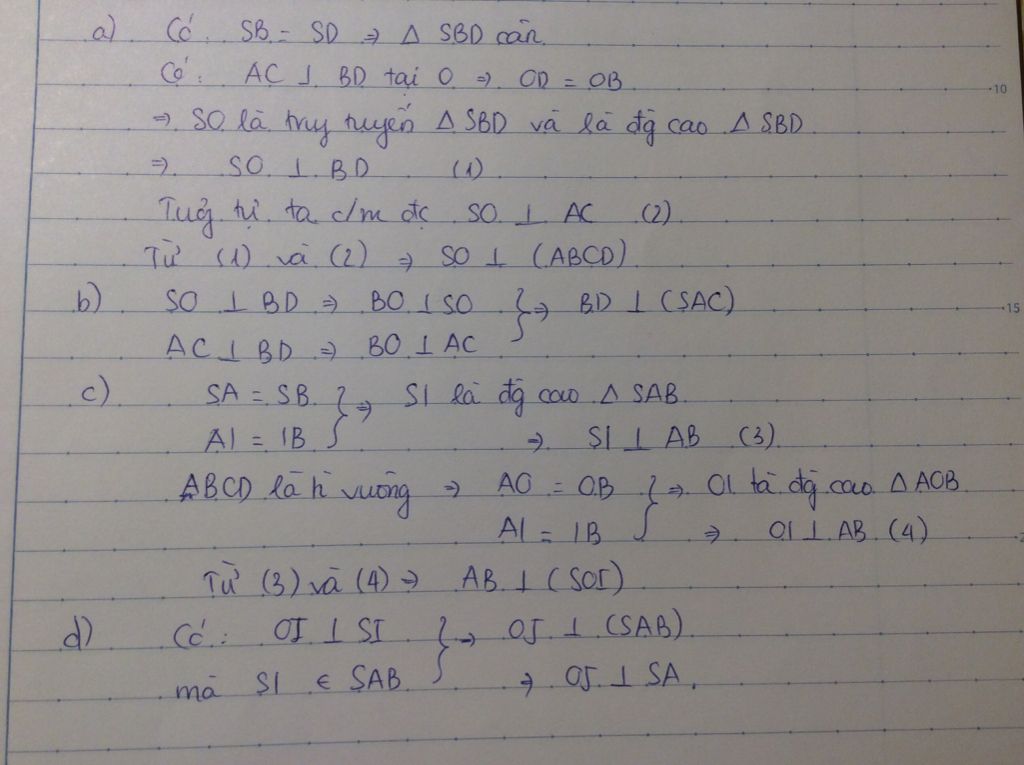 a) Có: SB = SD ⇒ Δ SBD cân.
Có: AC ⊥ BD tại O ⇒ OD = OB
⇒ SO là trug tuyến Δ SBD và là đg cao Δ SBD
⇒ SO ⊥ BD (1)
Tương tự ta c/m đc SO ⊥ AC (2)
Từ (1) và (2) ⇒ SO ⊥ (ABCD)
b) SO ⊥ BD ⇒ BO ⊥ SO } ⇒ BD ⊥ (SAC)
AC ⊥ BD ⇒ BO ⊥ AC
c) SA = SB } ⇒ SI là đg cao Δ SAB
AI = IB ⇒ SI ⊥ AB (3)
ABCD là h vuông ⇒ AO = OB } ⇒ OI là đg cao Δ AOB
AI = IB ⇒ OI ⊥ AB (4)
Từ (3) và (4) ⇒ AB ⊥ (SOI)
d) Có: OJ ⊥ SI } ⇒ OJ ⊥ (SAB)
mà SI ∈ SAB ⇒ OJ ⊥ SA.
10
15